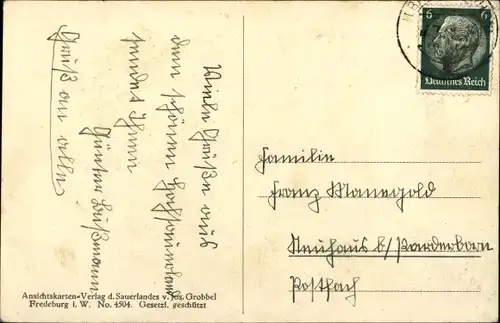 Viele Grüße aus
dem schönen Hochsauerland
sendet Ihnen
Günter Bußmann
Gruß an alle
Familie
Franz Manegold
Neuhaus b/Paderborn
Postfach
6 6
Deutsches Reich
Ansichtskarten-Verlag d. Sauerlandes v. Jos. Grobbel
Fredeburg i. W. No. 4504. Gesetzl. geschützt